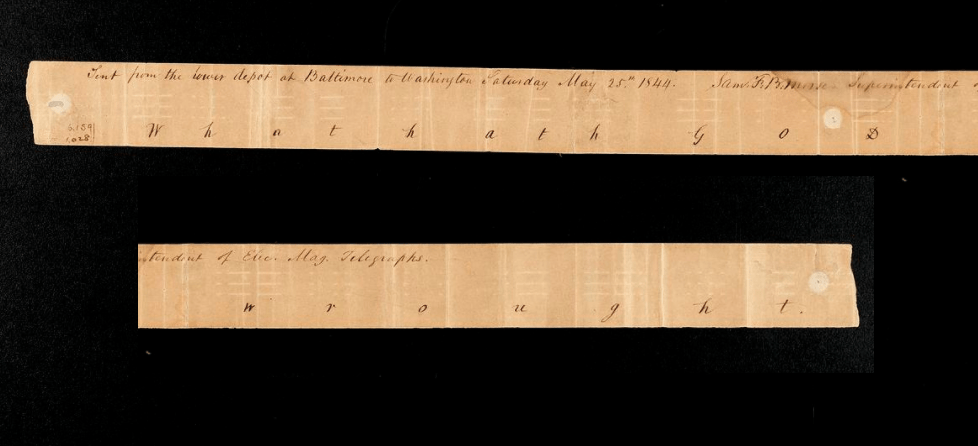 Sent from the lower depot at Baltimore to Washington Saturday May 25.th 1844. Sam. F. B. Morse. Superintendent o
6.159
1.028
W h a t h a t h G o D
intendent of Elec. Mag. Telegraphs.
w r o u g h t .